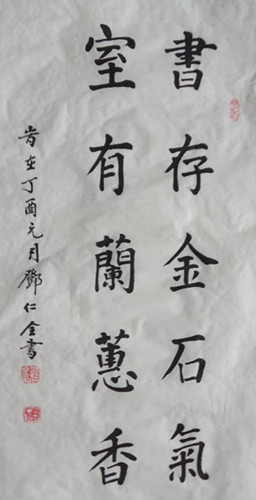 書存金石氣
室有蘭蕙香
岁在丁酉元月鄧仁全書